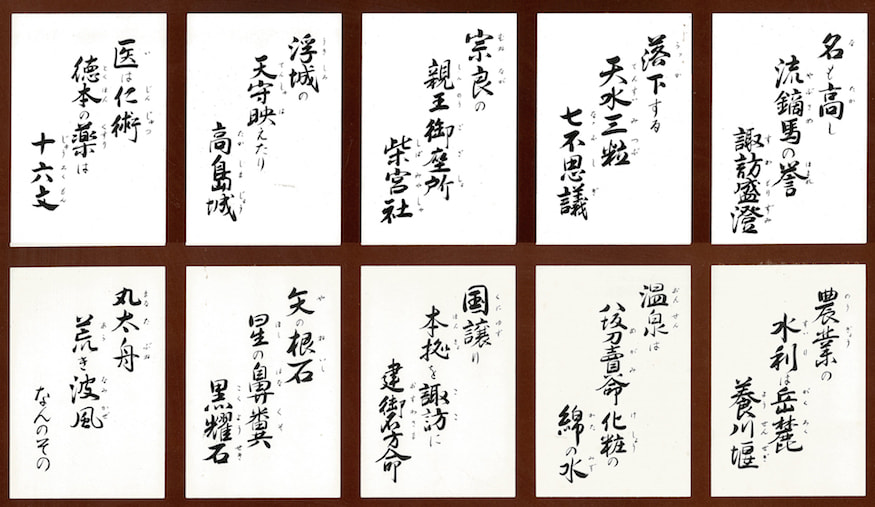 名も高し
流鏑馬の誉
諏訪盛澄
落下する
天水三粒
七不思議
宗良の
親王御座所
柴宮社
浮城の
天守映えたり
高島城
医は仁術
徳本の薬は
十六文
農業の
水利は岳麓
養川堰
温泉は
八坂刀賣命化粧の
綿の水
国譲り
本拠を諏訪に
建御名方命
矢の根石
星の鼻糞
黒耀石
丸太舟
荒き波風
なんのその